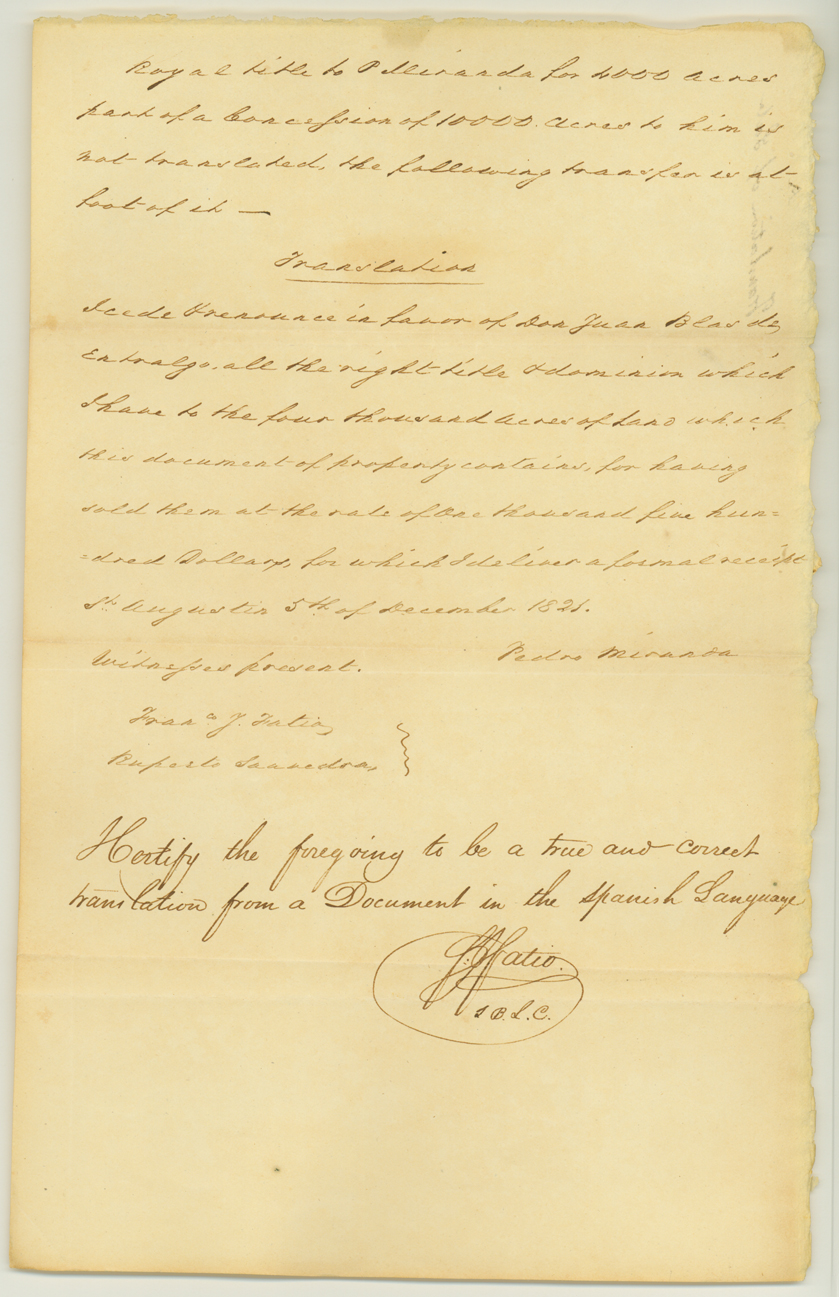 Royal title to P Miranda for 4000 acres
part of a Concession of 10000. Acres to him is
not translated, the following transfer is at
foot of it —
Translation
I cede & renounce in favor of Don Juan Blas de
Entralgo, all the right title & dominion which
I have to the four thousand Acres of Land which
this document of property contains, for having
sold them at the rate of One thousand five hun=
=dred Dollars, for which I deliver a formal receipt
St. Augustin 5th of December 1821.
Pedro Miranda
Witnesses present.
Franco J. Fatio,
Ruperto Saavedra,
I Certify the foregoing to be a true and correct
translation from a Document in the Spanish Language
F. J. Fatio.
S B. L. C.